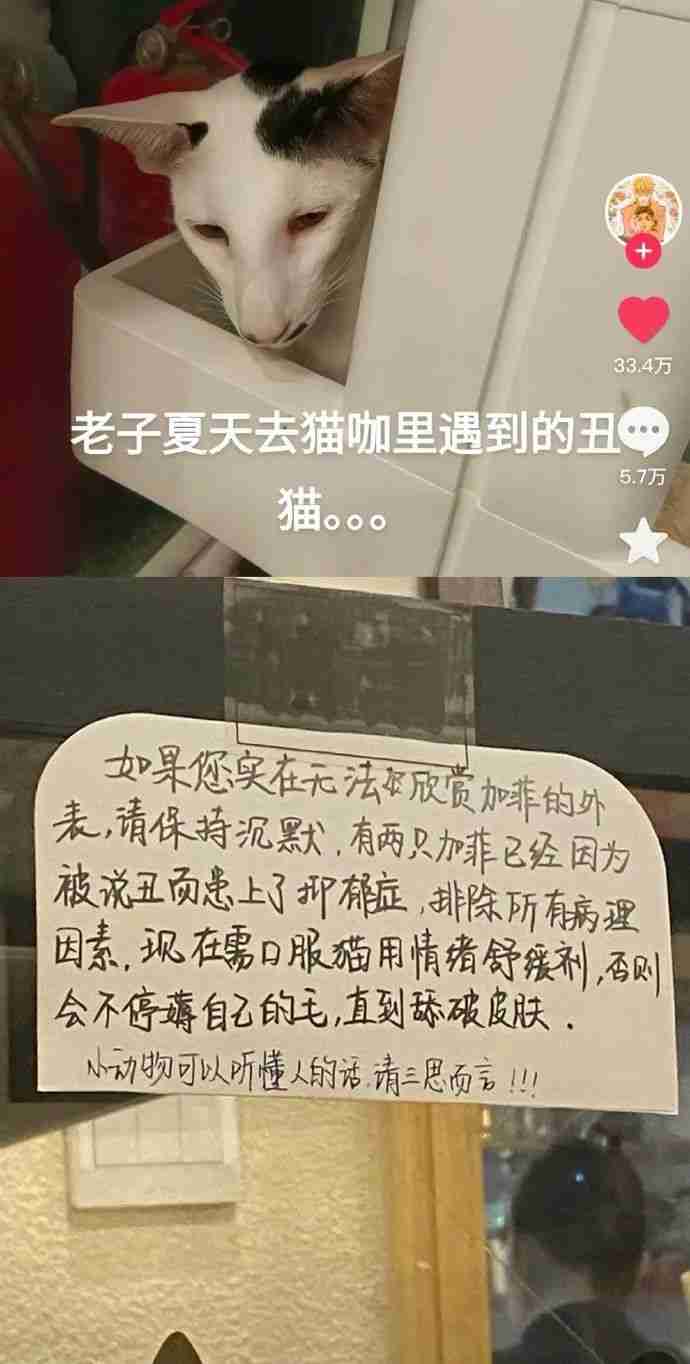 33.4万
老子夏天去猫咖里遇到的丑
5.7万
猫。。。
如果您实在无法欣赏加菲的外
表,请保持沉默,有两只加菲已经因为
被说丑而患上了抑郁症,排除所有病理
因素,现在需口服猫用情绪舒缓剂,否则
会不停薅自己的毛,直到舔破皮肤.
小动物可以听懂人的话,请三思而言!!!